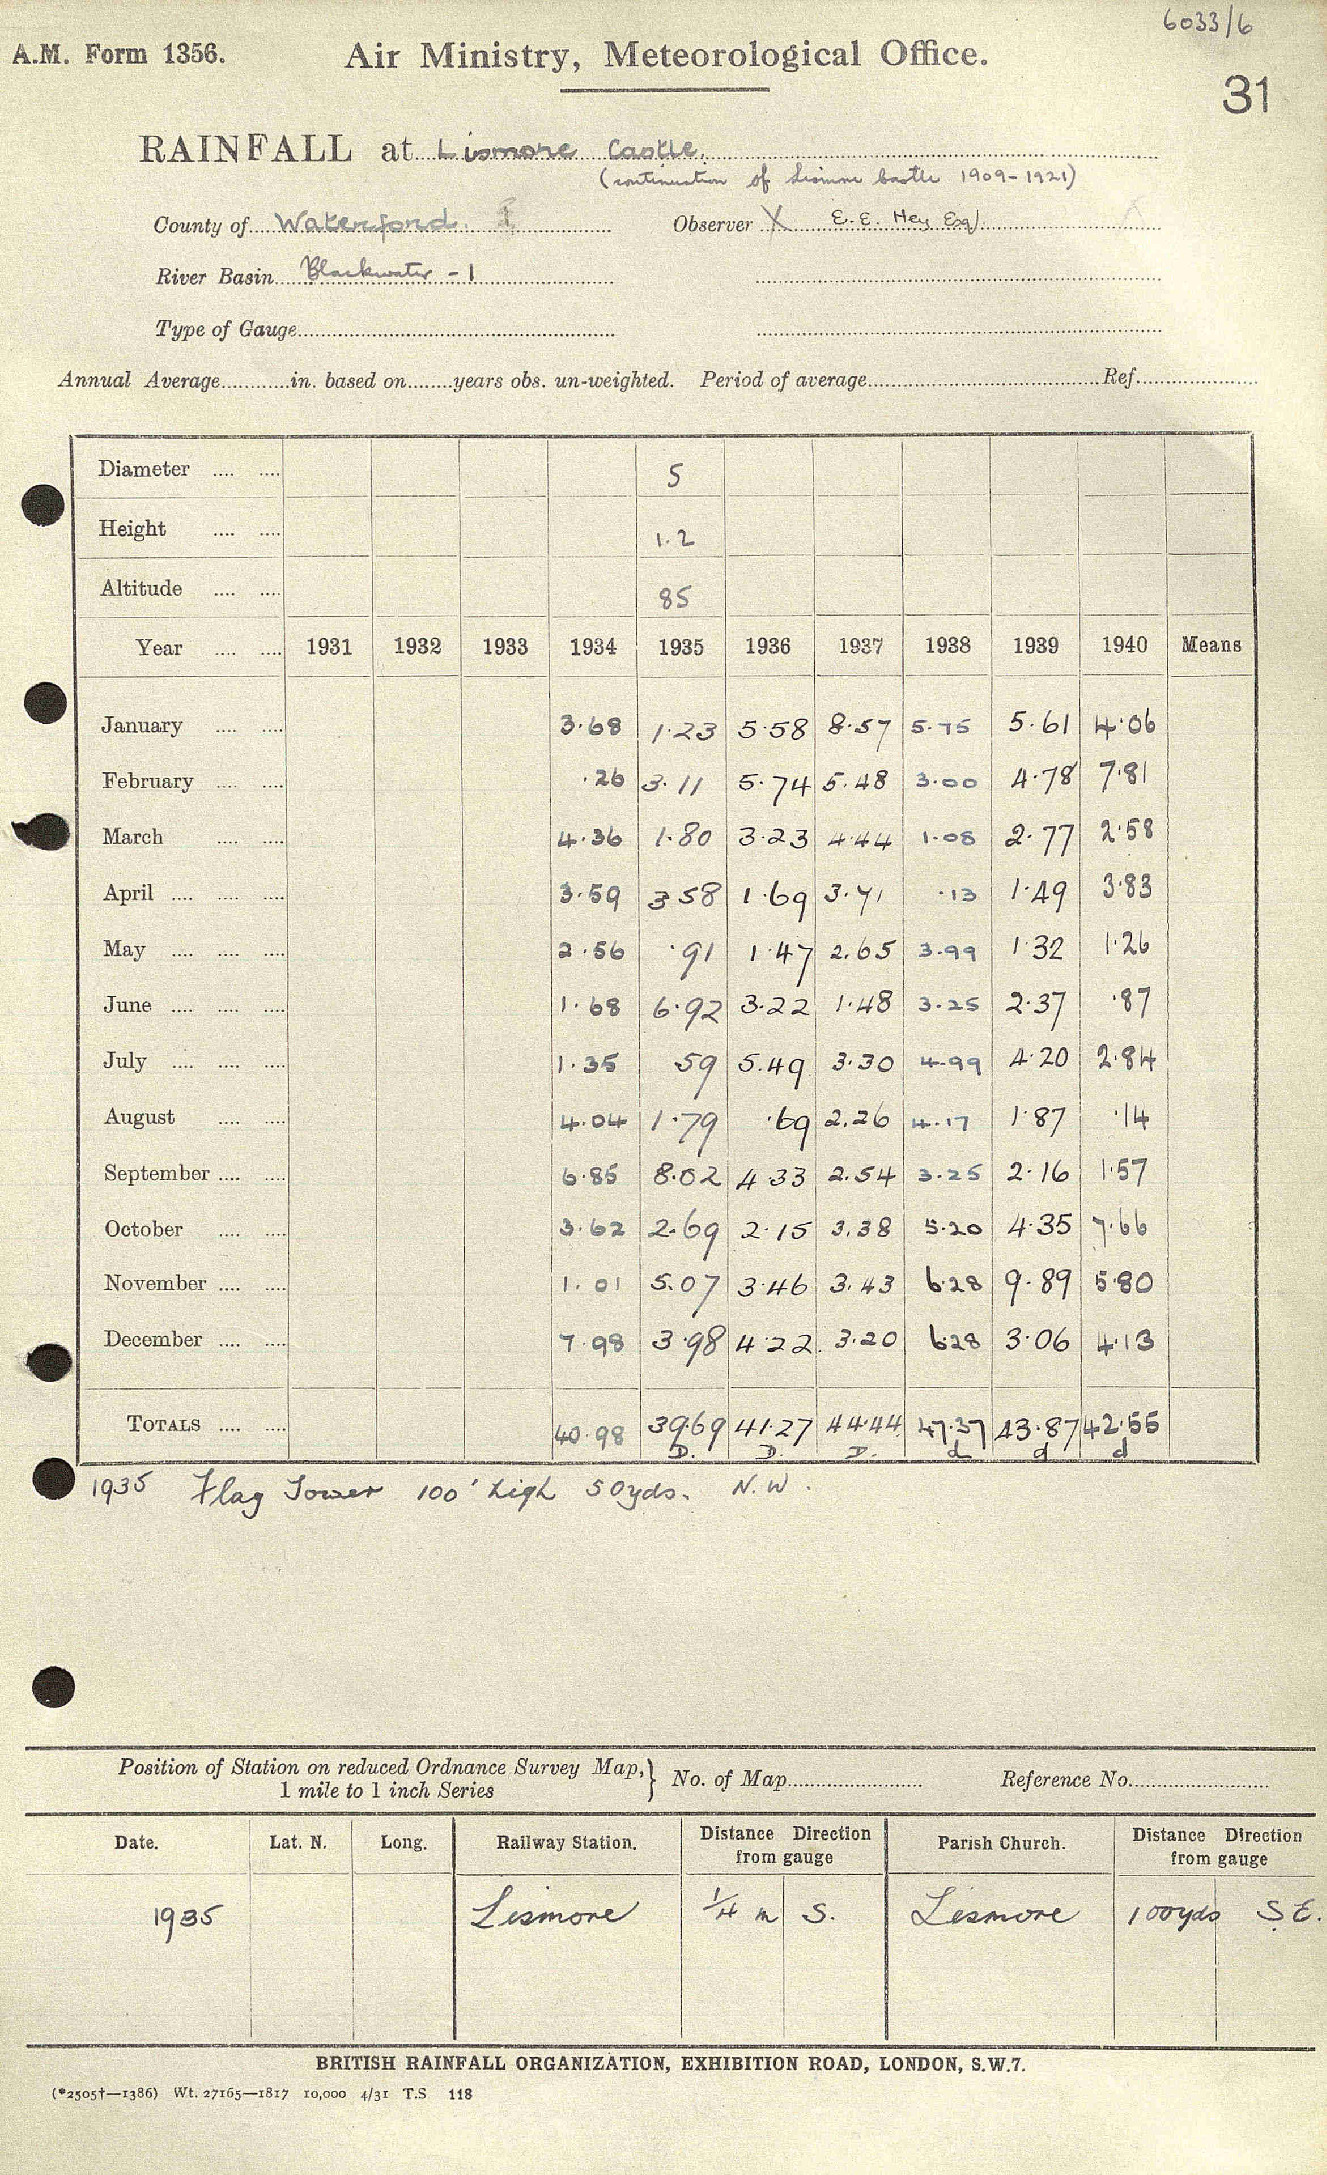 6033/6
A.M. Form 1356. Air Ministry, Meteorological Office.
31
RAINFALL at Lismore Castle.
(continuation of Lismore Castle 1909-1921)
County of Waterford. Observer X E. E. Hey Esq.
River Basin Blackwater - 1
Type of Gauge
Annual Average in. based on years obs. un-weighted. Period of average Ref.
Diameter 5
Height 1.2
Altitude 85
Year 1931 1932 1933 1934 1935 1936 1937 1938 1939 1940 Means
January 3.68 1.23 5.58 8.57 5.75 5.61 4.06
February .26 3.11 5.74 5.48 3.00 4.78 7.81
March 4.36 1.80 3.23 4.44 1.08 2.77 2.58
April 3.59 3 58 1.69 3.71 .13 1.49 3.83
May 2.56 .91 1.47 2.65 3.99 1.32 1.26
June 1.68 6.92 3.22 1.48 3.25 2.37 .87
July 1.35 59 5.49 3.30 4.99 4.20 2.84
August 4.04 1.79 .69 2.26 4.17 1.87 .14
September 6.85 8.02 4.33 2.54 3.25 2.16 1.57
October 3.62 2.69 2.15 3.38 5.20 4.35 7.66
November 1.01 5.07 3.46 3.43 6.28 9.89 5.80
December 7.98 3.98 4.22 3.20 6.28 3.06 4.13
TOTALS 40.98 39.69 41.27 44.44 47.37 43.87 42.55
D. D. D. d d d
1935 Flag Tower 100' high 50yds. N.W.
Position of Station on reduced Ordnance Survey Map, } No. of Map Reference No.
1 mile to 1 inch Series
Date. Lat. N. Long. Railway Station. Distance Direction from gauge Parish Church. Distance Direction from gauge
1935 Lismore 1/4 m S. Lismore 100yds S.E.
BRITISH RAINFALL ORGANIZATION, EXHIBITION ROAD, LONDON, S.W.7.
(*2505†—1386) Wt. 27165—1817 10,000 4/31 T.S. 118